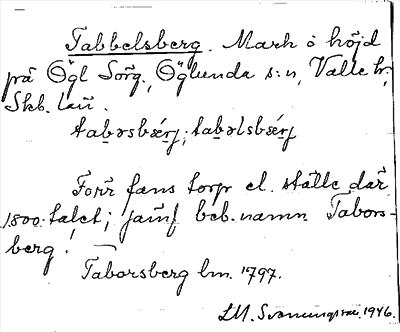 Tabbelsberg. Mark o höjd
på Ögl Sörg., Öglunda s:n, Valle hr,
Skb. län.
tabəsbærj; tabəlsbærj
Förr fans torp el. ställe där
1800-talet; jämf beb.namn Tabors-
berg!
Taborsberg lm. 1797.
1946.